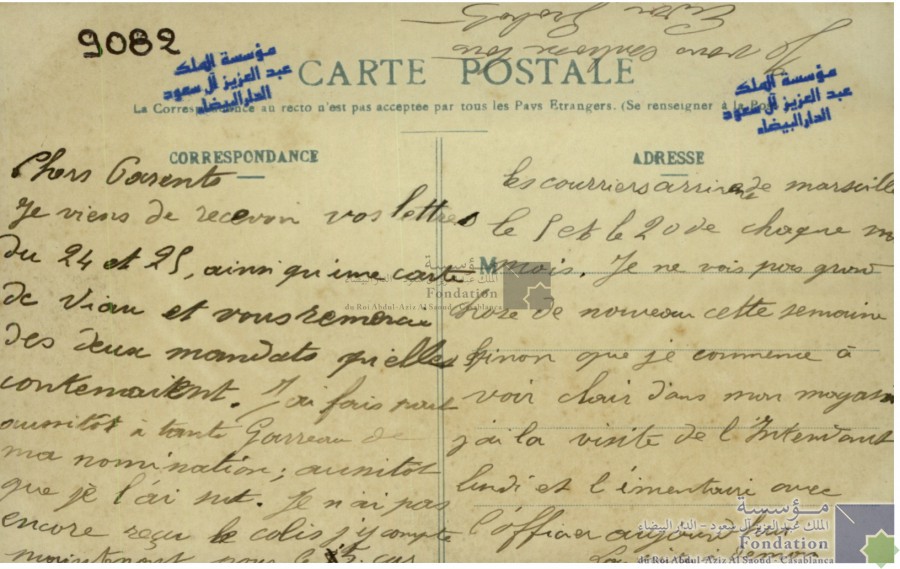 9082
مؤسسة الملك
عبد العزيز آل سعود
الدار البيضاء
CARTE POSTALE
مؤسسة الملك
عبد العزيز آل سعود
الدار البيضاء
La Correspondance au recto n'est pas acceptée par tous les Pays Etrangers. (Se renseigner à la Pos
CORRESPONDANCE
Chers Parents
Je viens de recevoir vos lettres
du 24 et 25, ainsi qu'une carte
de Viau et vous remercie
des deux mandats qu'elles
contenaient. J'ai fais
aussitôt à tante Garreau de
ma nomination; aussitôt
que je l'ai sut. Je n'ai pas
encore reçu le colis j'y compte
maintenant pour le
ADRESSE
les courriers arrivent de marseille
le 5 et le 20 de chaque
M mois. Je ne vois pas grand
chose de nouveau cette semaine
sinon que je commence à
voir clair dans mon magasin
j'ai la visite de l'Intendant
lundi et l'imentaire avec
l'officier aujourd'hui
Fondation
du Roi Abdul-Aziz Al Saoud - Casablanca
مؤسسة
الملك عبد العزيز آل سعود - الدار البيضاء
Fondation
du Roi Abdul-Aziz Al Saoud - Casablanca